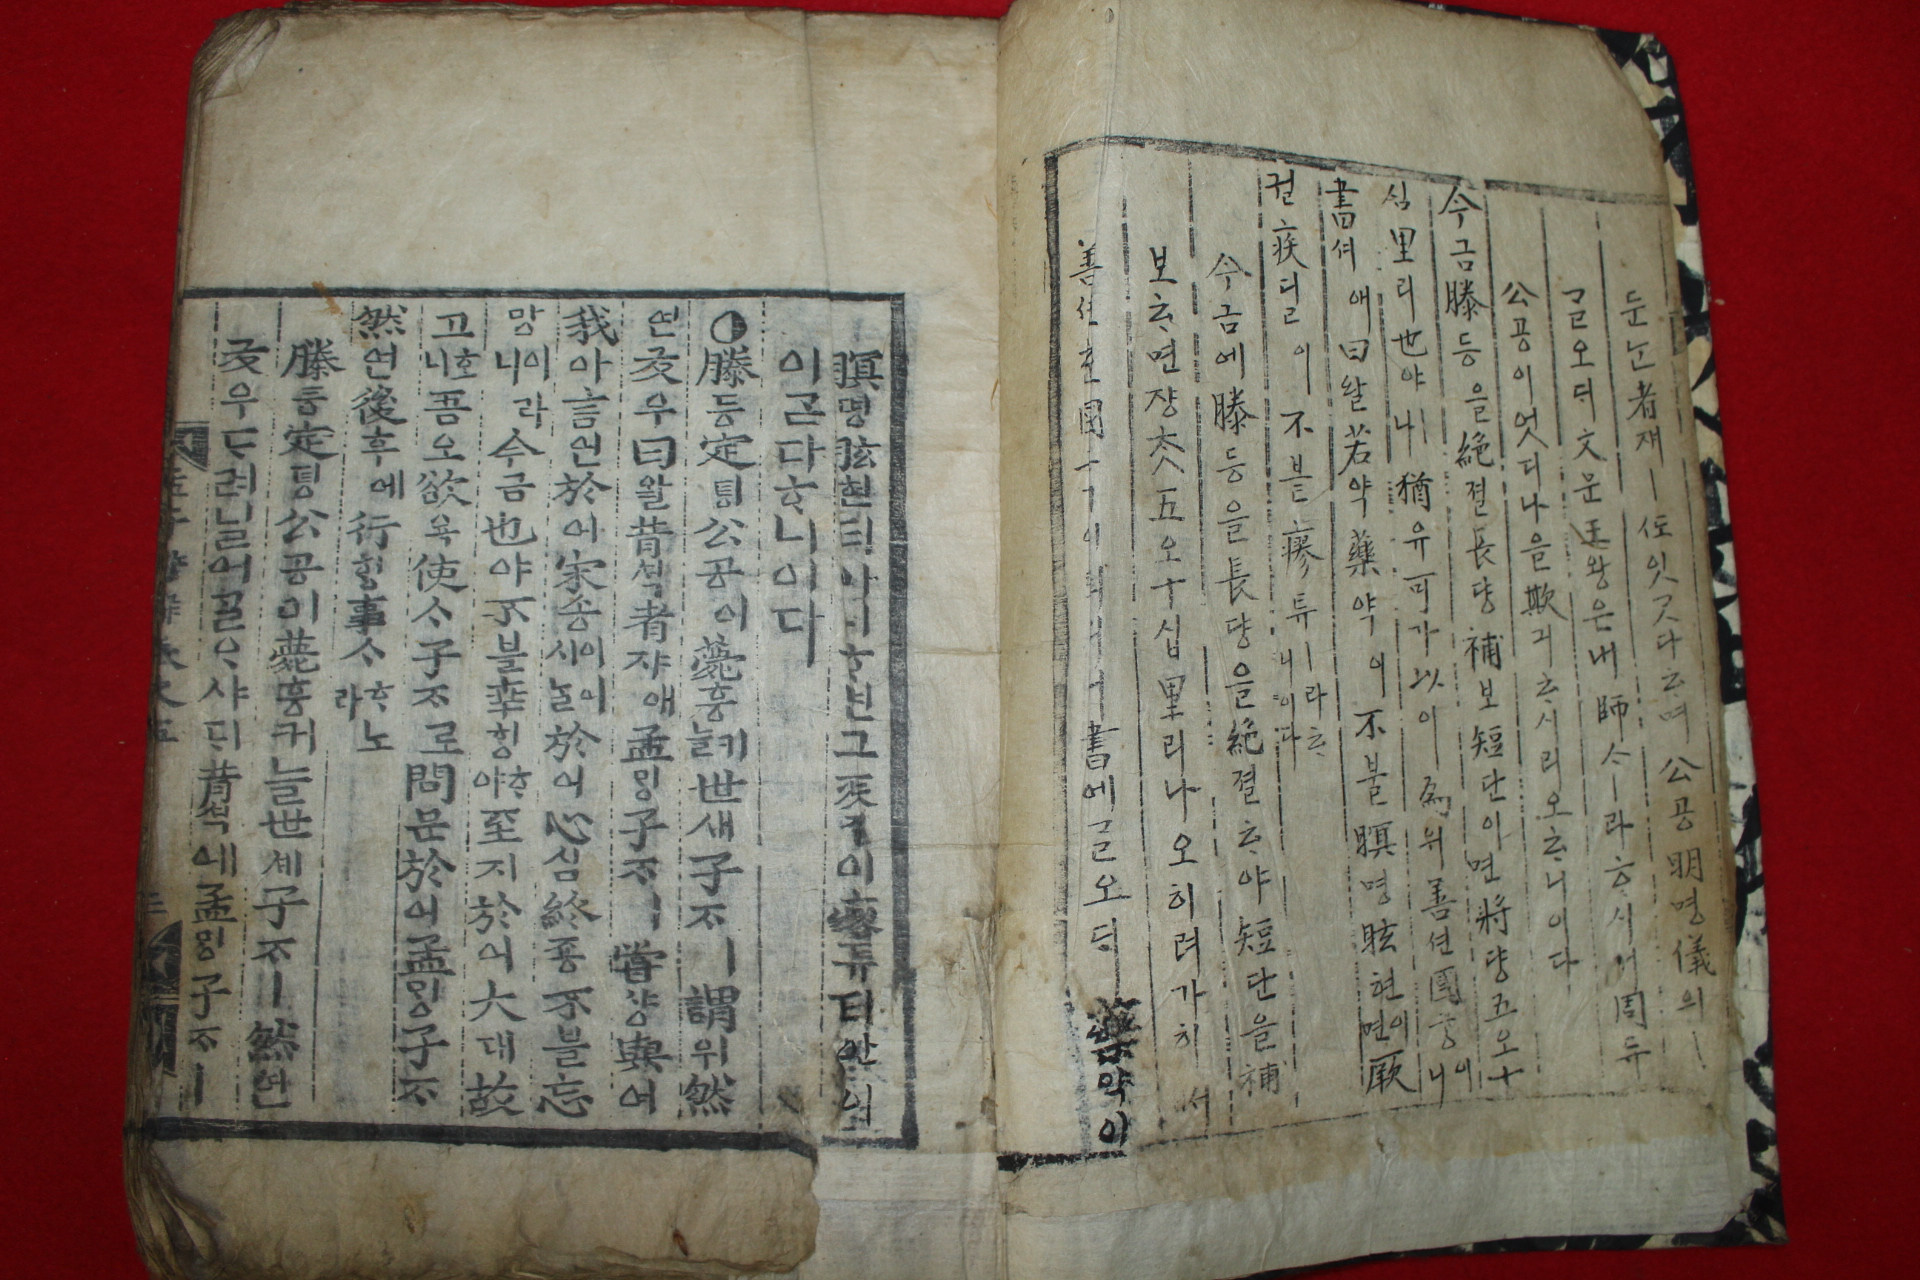 둔는者쟈ㅣ 在잇ᄀᆞᆺ다ᄒᆞ며 公공明명儀의ㅣ
ᄀᆞᆯ오ᄃᆡ 文문王왕은 내 師ᄉᆞㅣ라 ᄒᆞ시니 周쥬
公공이 엇디 나을 欺긔ᄒᆞ시리오 ᄒᆞ니이다
今금滕등을 絕졀長댱補보短단이면 將쟝五오十
심里리也야나 猶유可가以이 爲위善션國국이니
書셔애 曰왈若약藥약이 不블瞑명眩현이면 厥
궐疾딜이 不블瘳튜ㅣ라ᄒᆞ니이다
今금에 滕등을 長댱을 絕졀ᄒᆞ야 短단을 補
보ᄒᆞ면 쟝ᄎᆞᆺ 五오十십里리나 오히려 가히 ᄡᅥ
善션ᄒᆞᆫ 國국 書에 ᄀᆞᆯ오ᄃᆡ 藥약이
瞑명眩현티 아니ᄒᆞ면 그 疾질이 瘳튜티 안일
이른다 ᄒᆞ니이다
滕등定뎡公공이 薨훙커늘 世셰子ᄌᆞㅣ 謂위然
연友우曰왈昔셕者쟈애 孟ᄆᆡᆼ子ᄌᆞㅣ 嘗샹與여
我아言언於어宋송이시이늘 於어心심終죵不블忘
망이니라 今금也야不블幸ᄒᆡᆼᄒᆞ야 至지於어大대故
고호니 吾오欲욕使ᄉᆞ子ᄌᆞ로 問문於어孟ᄆᆡᆼ子ᄌᆞ
然연後후에 行ᄒᆡᆼ事ᄉᆞᄒᆞ노라
滕등定뎡公공이 薨훙커늘 世셰子ᄌᆞㅣ 然연
友우ᄃᆞ려 닐어 ᄀᆞᆯᄋᆞ샤ᄃᆡ 昔셕에 孟ᄆᆡᆼ子ᄌᆞㅣ